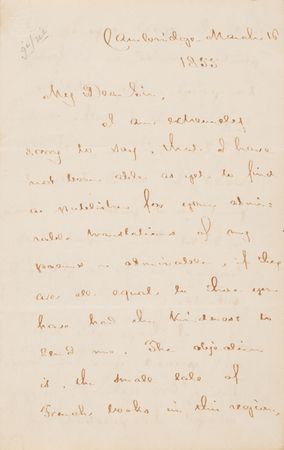 Cambridge March 16
1855
My Dear Sir,
I am extremely
sorry to say, that I have
not been able as yet to find
a publisher for your admi-
rable translations of my
poems – admirable, if they
are all equal to those you
have had the kindness to
send me. The objection
is, the small sale of
French books in this region,